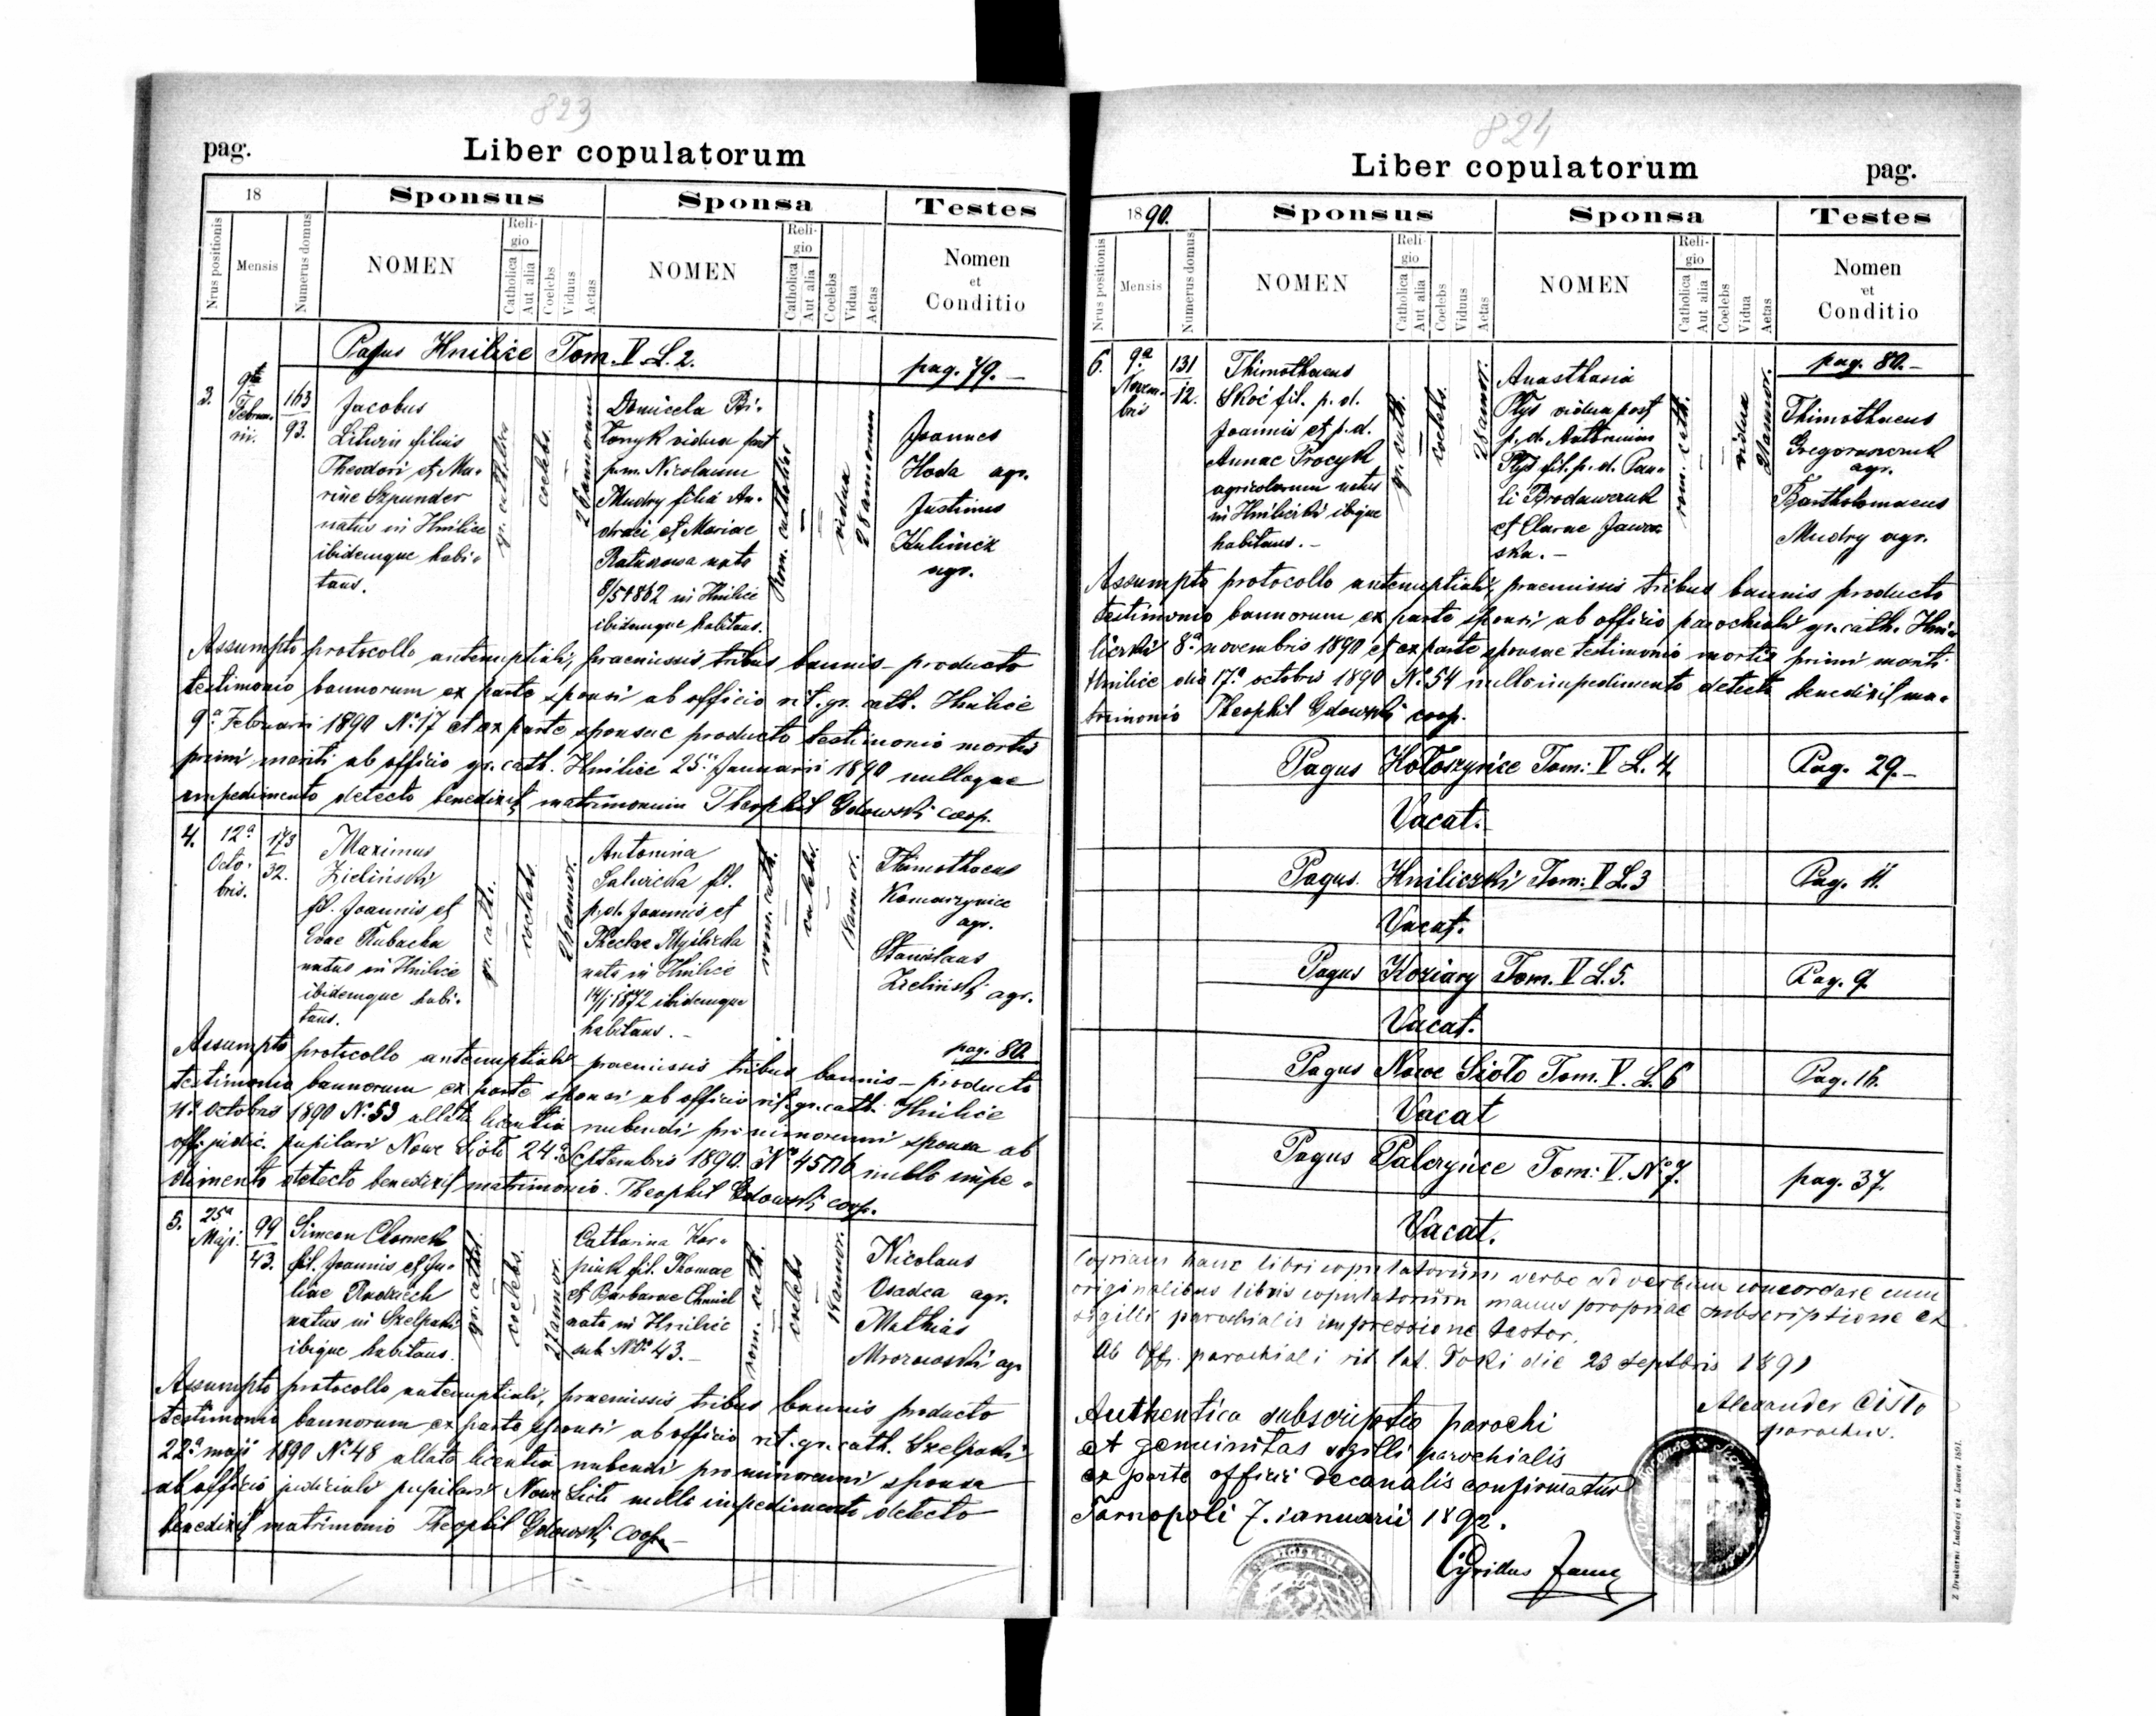 823
pag.
Liber copulatorum
18
Sponsus
Sponsa
Testes
Nrus positionis
Mensis
Numerus domus
NOMEN
Religio
Catholica
Aut alia
Coelebs
Viduus
Aetas
NOMEN
Religio
Catholica
Aut alia
Coelebs
Vidua
Aetas
Nomen
et
Conditio
Pagus Hnilice Tom. V. L. 2.
pag. 79. –
3.
9ta
Februarii.
163
93.
Jacobus
Litwin filius
Theodori et Ma-
riae Szpunder
natus in Hnilice
ibidemque habi-
tans.
gr. catholica
coelebs.
annorum
Domicela
vidua post
p.m. Nicolaum
Mudry filia An-
dreae et Mariae
nata
8/5 1862 in Hnilice
ibidemque habitans.
Rom. catholica
vidua
28 annorum
Joannes
Hoda agr.
Justinus
Kulinicz
agr.
Assumpto protocollo antenuptiali, praemissis tribus bannis – producto
testimonio bannorum ex parte sponsi ab officio rit. gr. cath. Hnilice
9a Februari 1890 No 17 et ex parte sponsae producto testimonio mortis
primi mariti ab officio gr. cath. Hnilice 25. Januarii 1890 nulloque
impedimento detecto benedixit matrimonium Theophil Gdowski coop.
4.
12a
Octo-
bris.
173
32.
Maximus
Zieliński
fil. Joannis et
Evae Rubacha
natus in Hnilice
ibidemque habi-
tans.
gr. cath.
coelebs.
annor.
Antonina
Salwicka fil.
p. d. Joannis et
Theclae Myślicka
nata in Hnilice
14/1 1872 ibidemque
habitans. –
rom. cath.
coelebs.
18 annor.
Thimothaeus
Komarzynice
agr.
Stanislaus
Zieliński agr.
pag. 80.
Assumpto protocollo antenuptiali praemissis tribus bannis – producto
testimonio bannorum ex parte sponsi ab officio rit. gr. cath. Hnilice
11a Octobris 1890 No 53 allata licentia nubendi pro minorenni sponsa ab
off. judic. pupilari Nowe Sioło 24a Septembris 1890. No 4576 nullo impe-
dimento detecto benedixit matrimonio. Theophil Gdowski coop.
5.
25a
Maji.
99
43.
Simeon Chomek
fil. Joannis et Ju-
liae Radzich
natus in Szelpaki
ibique habitans.
gr. cath.
coelebs.
27 annor.
Catharina Kor-
piuk fil. Thomae
et Barbarae Chmiel
nata in Hnilice
sub No 43. –
rom. cath.
coelebs
18 annor.
Nicolaus
Osadca agr.
Mathias
Mrozowski agr.
Assumpto protocollo antenuptiali, praemissis tribus bannis producto
testimonio bannorum ex parte sponsi ab officio rit. gr. cath. Szelpaki
22a maji 1890 No 48 allata licentia nubendi pro minorenni sponsa
ab officio judiciali pupilari Nowe Sioło nullo impedimento detecto
benedixit matrimonio Theophil Gdowski coop. –
824
Liber copulatorum
pag.
1890.
Sponsus
Sponsa
Testes
Nrus positionis
Mensis
Numerus domus
NOMEN
Religio
Catholica
Aut alia
Coelebs
Viduus
Aetas
NOMEN
Religio
Catholica
Aut alia
Coelebs
Vidua
Aetas
Nomen
et
Conditio
pag. 80. –
6.
9a
Novem-
bris
131
12.
Thimothaeus
Skoć fil. p. d.
Joannis et p. d.
Annae Procyk
agricolarum natus
in Hniliczki ibique
habitans. –
gr. cath.
coelebs.
28 annor.
Anasthasia
Płys vidua post
p. d. Anthonium
Płys fil. p. d. Pau-
li Brodawczuk
et Clarae Jawor-
ska. –
rom. cath.
vidua
21 annor.
Thimothaeus
Gregoraszczuk
agr.
Bartholomaeus
Mudry agr.
Assumpto protocollo antenuptiali, praemissis tribus bannis producto
testimonio bannorum ex parte sponsi ab officio parochiali gr. cath. Hni-
liczki 8a novembris 1890 et ex parte sponsae testimonio mortis primi mariti
Hnilice die 17a octobris 1890 No 54 nullo impedimento detecto benedixit ma-
trimonio Theophil Gdowski coop.
Pagus Hołoszynice Tom: V L. 4.
Pag. 29. –
Vacat.
Pagus Hniliczki Tom: V L. 3
Pag. 11.
Vacat.
Pagus Koziary Tom. V L. 5.
Pag. 9.
Vacat.
Pagus Nowe Sioło Tom. V. L. 6
Pag. 16.
Vacat
Pagus Palczyńce Tom: V. No 7.
pag. 37.
Vacat.
Copiam hanc libri copulatorum verbo ad verbum concordare cum
originalibus libris copulatorum manus propriae subscriptione et
sigilli parochialis impressione testor.
Ab Off. parochiali rit. lat. Toki die 23 Septbris 1891
Alexander Cisło
parochus.
Authentica subscriptio parochi
et genuinitas sigilli parochialis
ex parte officii decanalis confirmatur
Tarnopoli 7. ianuarii 1892.
Cyrillus
Z Drukarni Ludowej we Lwowie 1891.